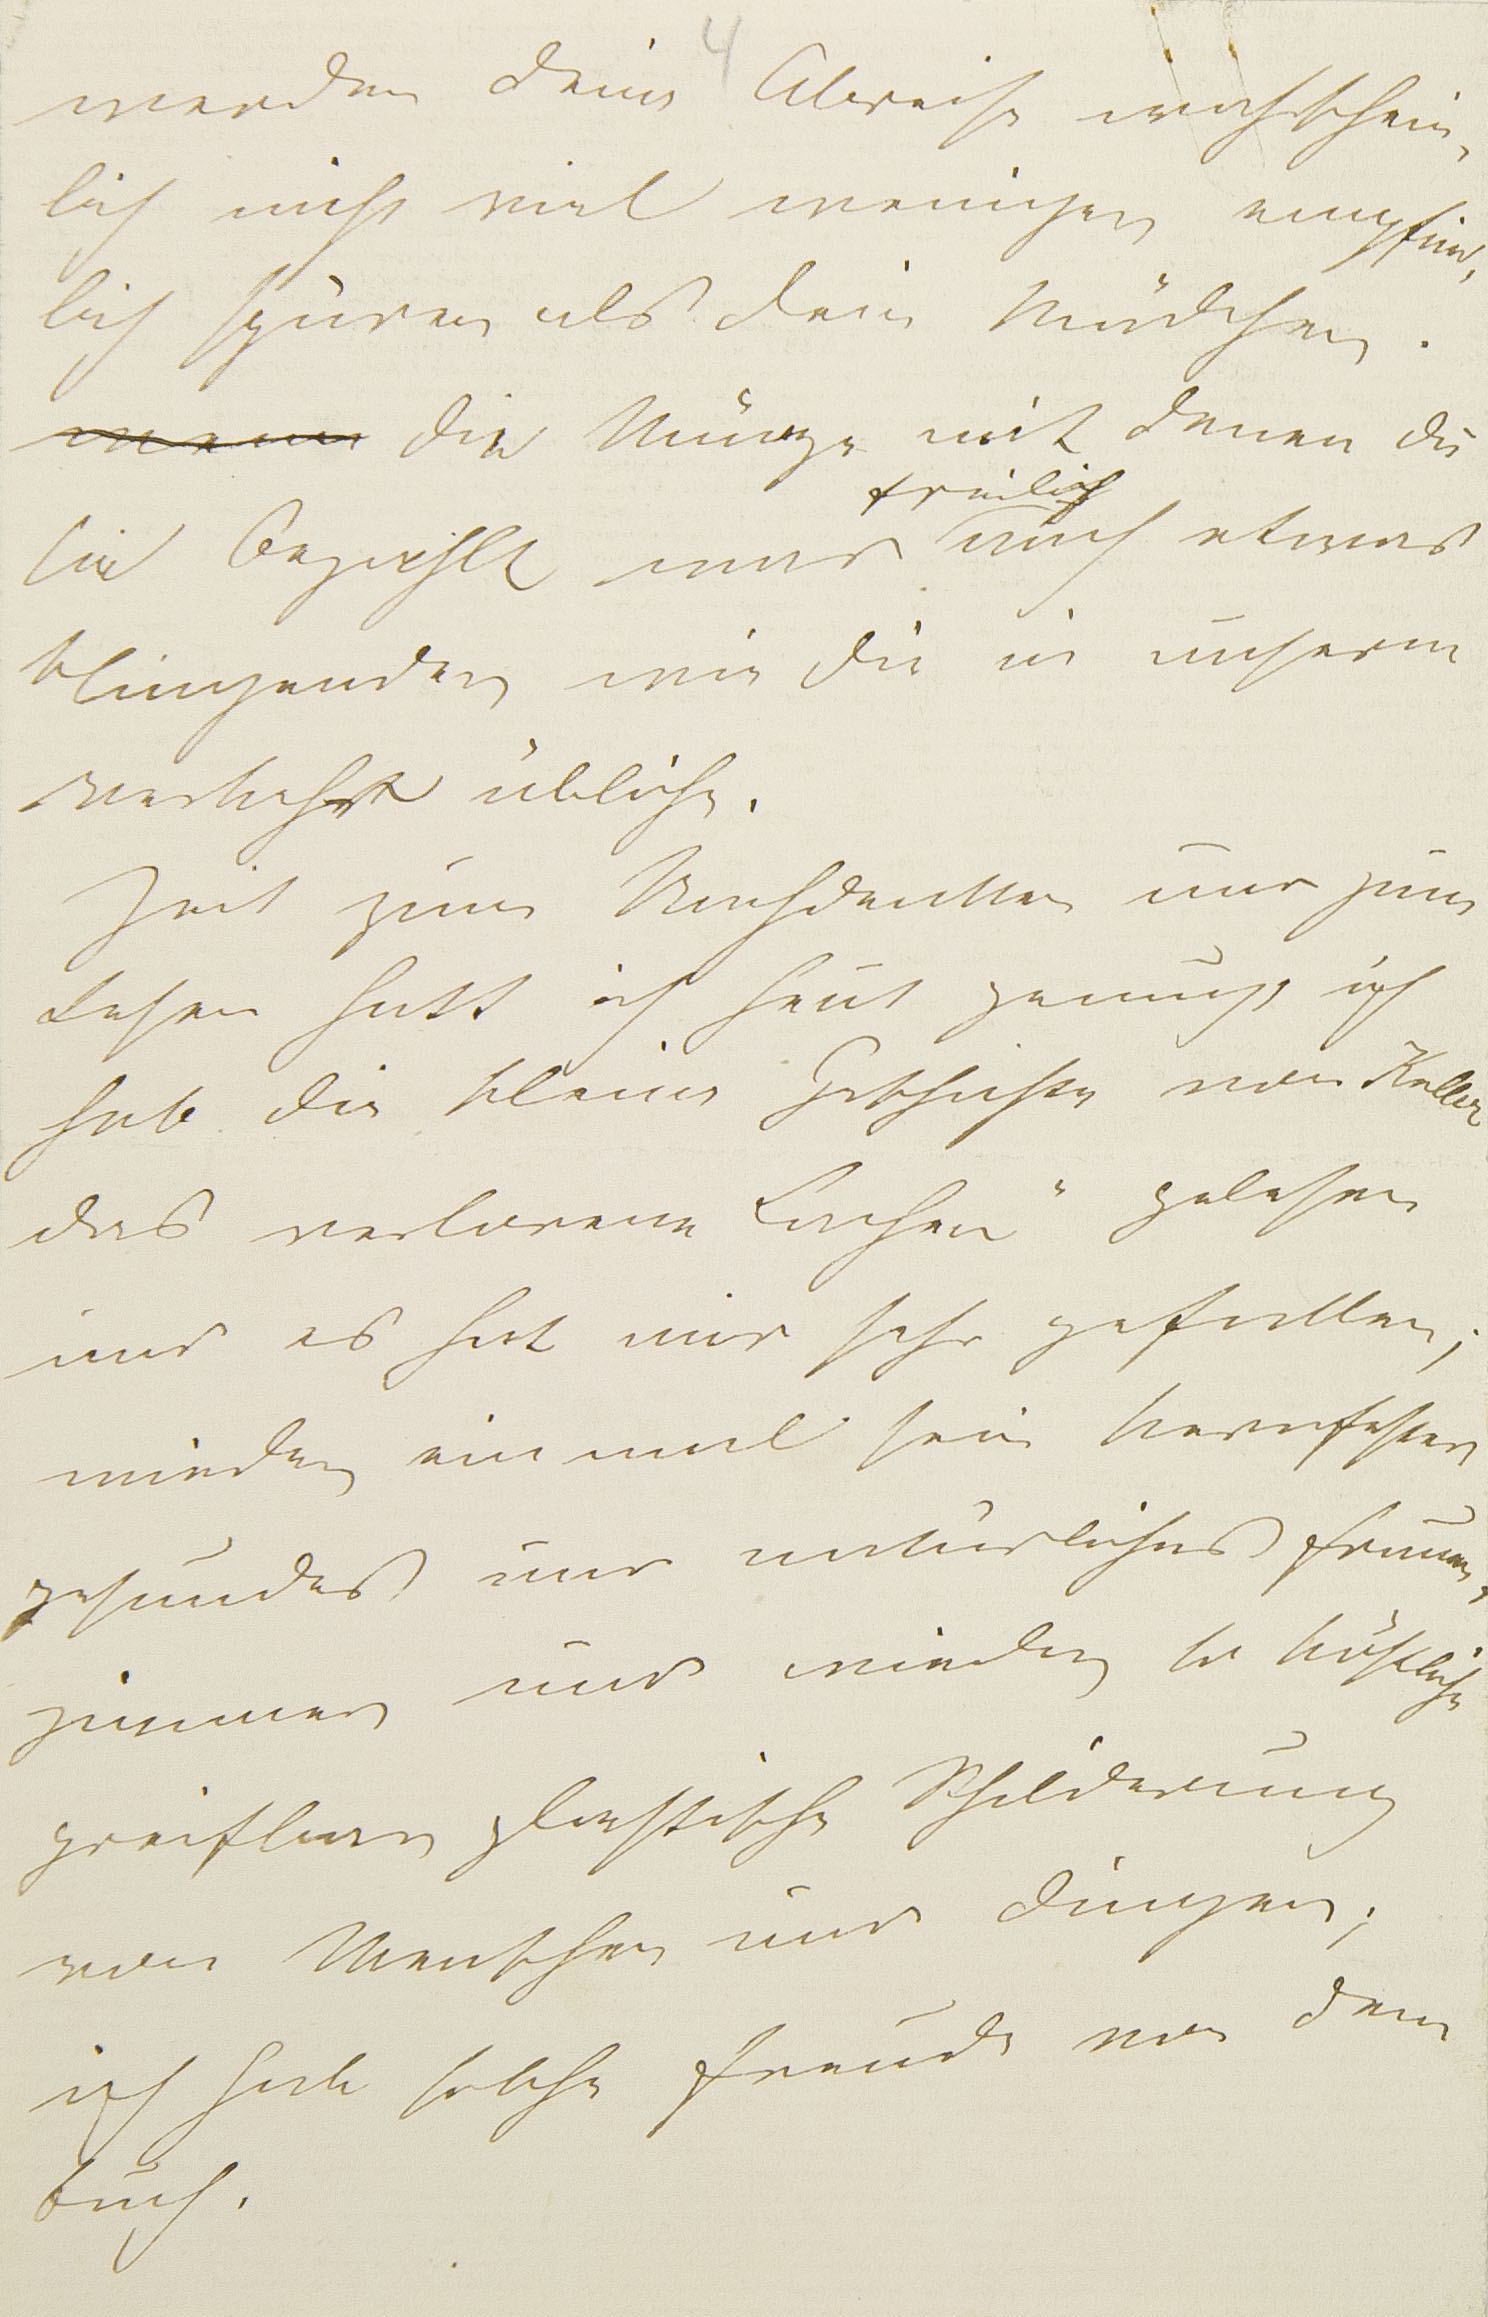 4
werden deine Abreise wahrschein,
lich nicht viel weniger empfind,
lich spüren als dein Mädchen.
wenn die Münze mit denen du
sie bezahlt war freilich auch etwas
klingender wie die in unserm
verkehr übliche.
Zeit zum Nachdenken und zum
Lesen hatt ich heut genug; ich
hab die kleine Geschichte von Keller
das verlorene Lachen" gelesen
und es hat mir sehr gefallen;
wieder einmal sein kernfestes
gesundes und natürliches frauen,
zimmer und wieder so köstliche
greifbare plastische Schilderung
von Menschen und dingen;
ich hab solche freude von dem
buch.